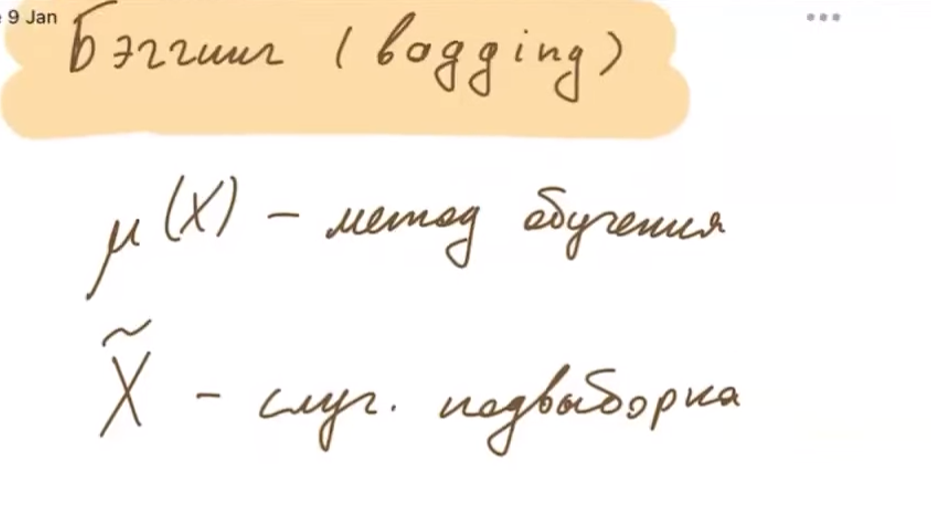 9 Jan
Бэггинг (bagging)
μ(X) - метод обучения
X̃ - случ. подвыборка